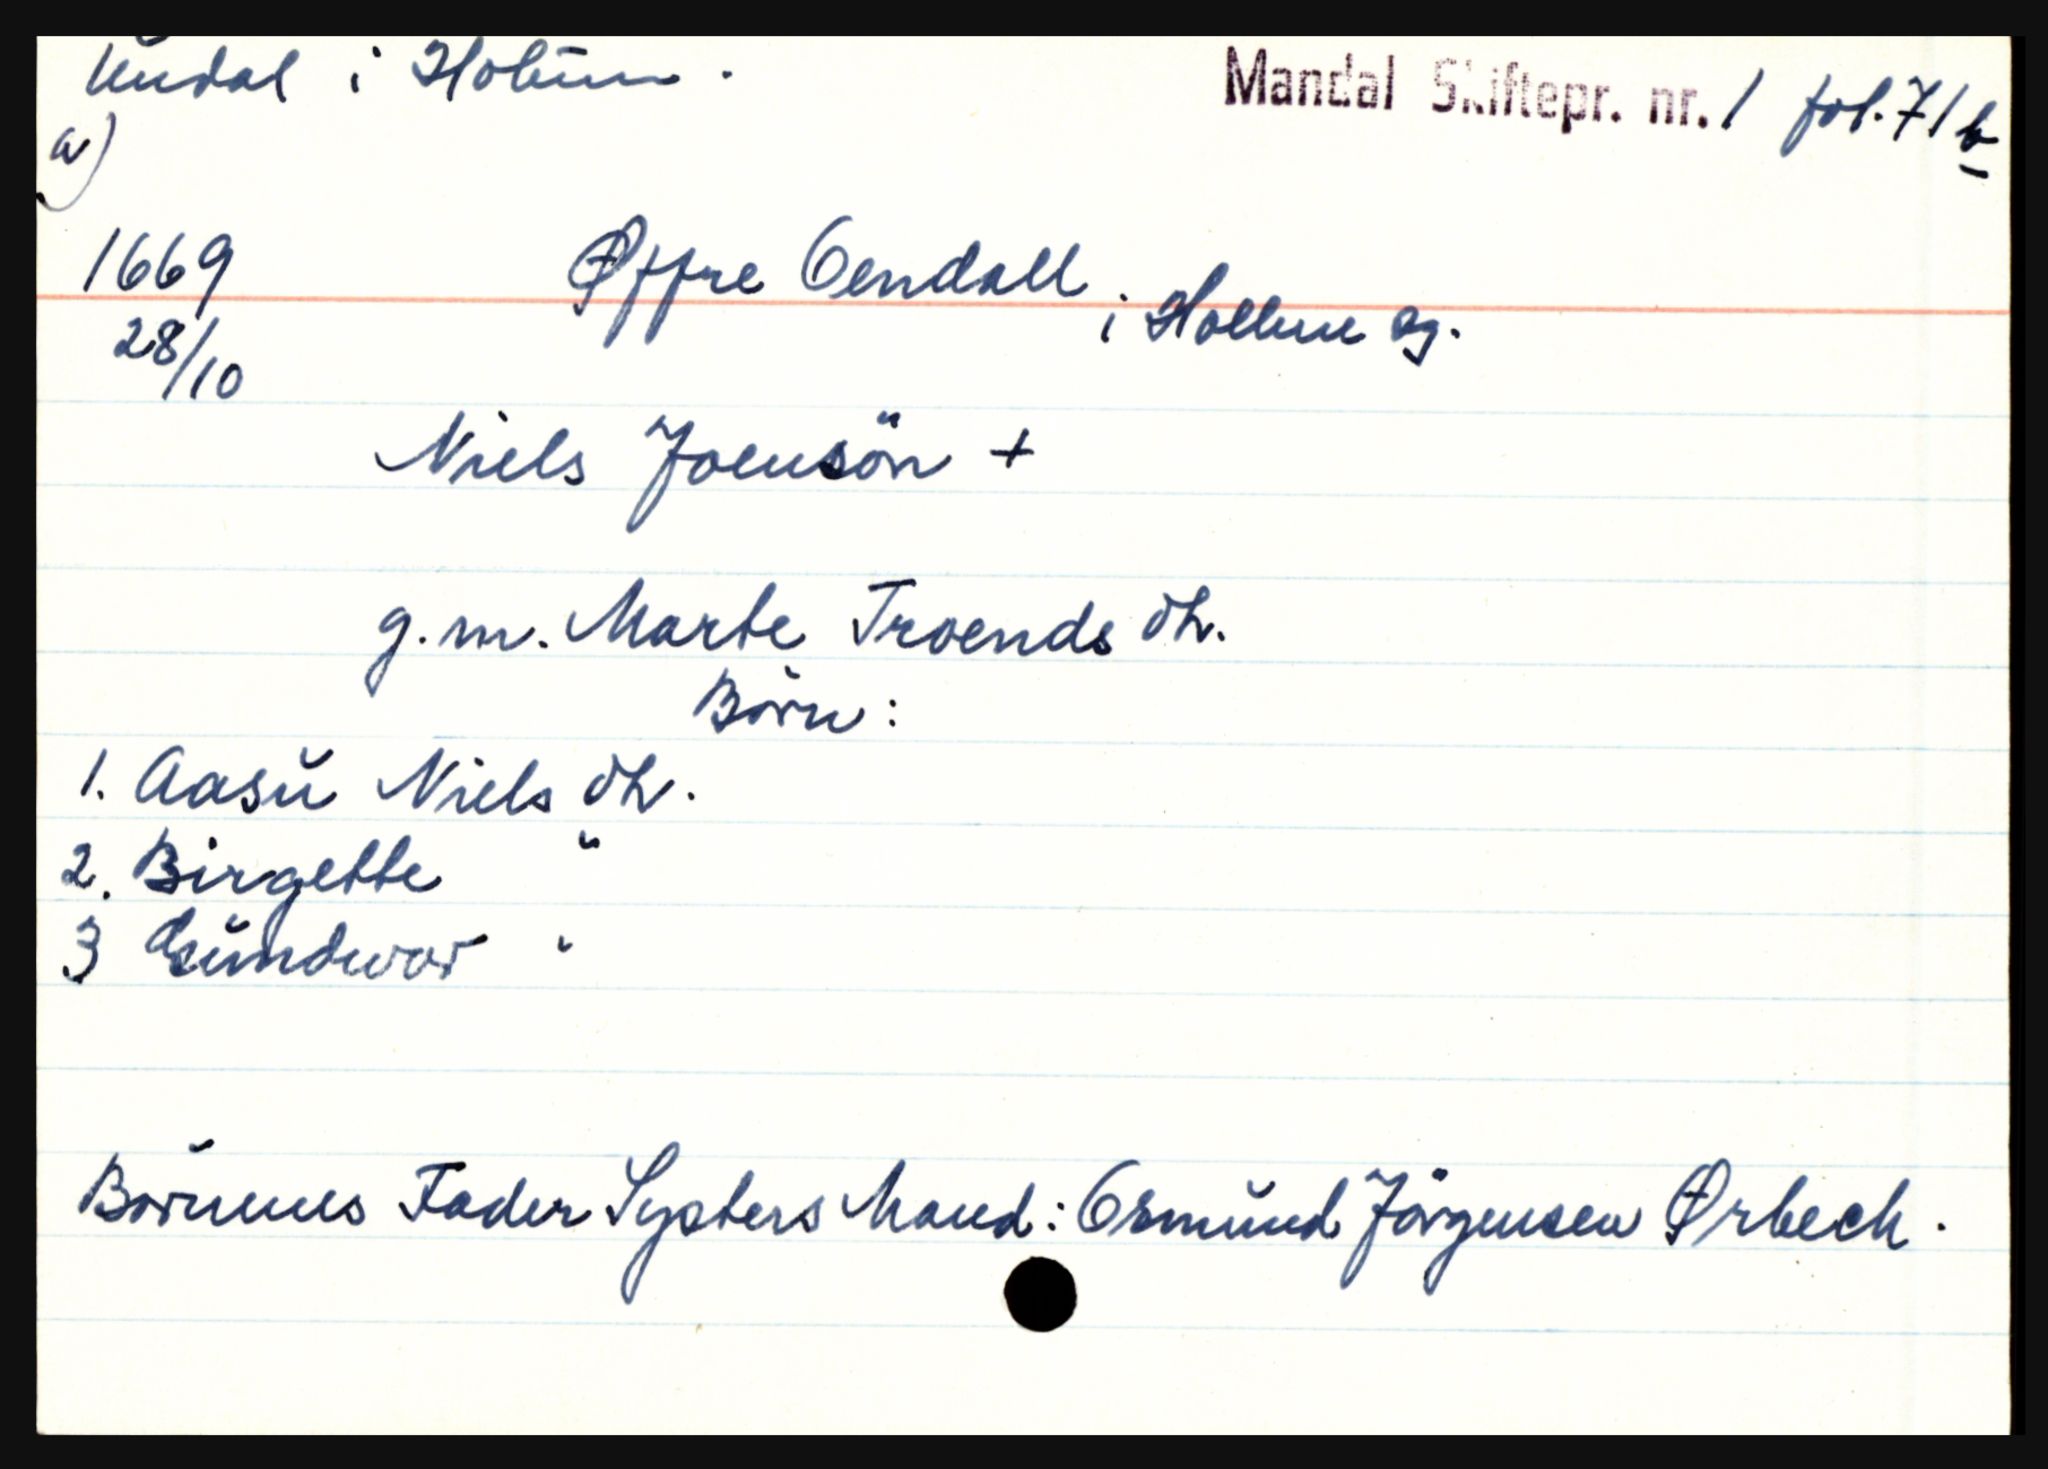 Undal i Holum.
Mandal Skiftepr. nr. 1 fol. 71 b
a)
1669
28/10
Øffre Oendall i Hollum sg.
Niels Joensön +
g.m. Marte Troends dtr.
Börn:
1. Aasŭ Niels dtr.
2. Birgette "
3 Gŭndwor "
Börnenes Fader Systers Mand: Osmŭnd Jörgensen Ørbech.